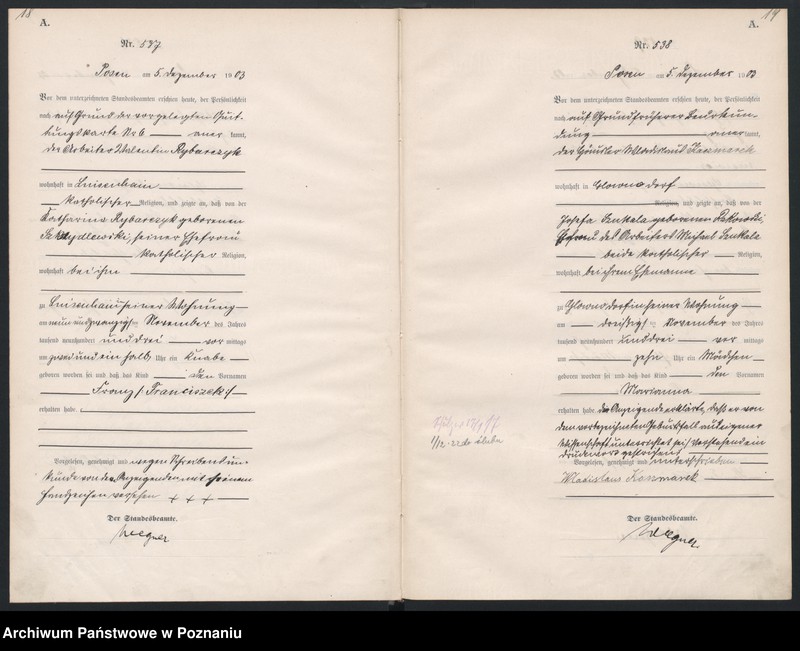 18
A.
Nr. 537
Posen am 5. Dezember 1903
Vor dem unterzeichneten Standesbeamten erschien heute, der Persönlichkeit
nach auf Grund der vorgelegten Quit-
tungskarte No 6 anerkannt,
der Arbeiter Valentin Rybarczyk
wohnhaft in Luisenhain
katholischer Religion, und zeigte an, daß von der
Katharina Rybarczyk geborenen
Szkydlewski, seiner Ehefrau
katholischer Religion,
wohnhaft bei ihm
zu Luisenhain in seiner Wohnung
am neun und zwanzigsten November des Jahres
tausend neunhundert und drei vor mittags
um zwei und ein halb Uhr ein Knabe
geboren worden sei und daß das Kind den Vornamen
Franz /: Franciszek :/
erhalten habe.
Vorgelesen, genehmigt und wegen Schreibensun-
kunde von dem Anzeigenden mit seinem
Handzeichen versehen + + +
Der Standesbeamte.
Wegner
19
A.
Nr. 538
Posen am 5. Dezember 1903
Vor dem unterzeichneten Standesbeamten erschien heute, der Persönlichkeit
nach auf Grund früherer Beurkun-
dung anerkannt,
der Häusler Wladislaus Kaczmarek
wohnhaft in Glowno Dorf
Religion, und zeigte an, daß von der
Josefa Szukala geborenen
Ehefrau des Arbeiters Michael Szukala
beide katholischer Religion,
wohnhaft bei ihrem Ehemanne
zu Glowno Dorf in seiner Wohnung
am dreißigsten November des Jahres
tausend neunhundert und drei vor mittags
um zehn Uhr ein Mädchen
geboren worden sei und daß das Kind den Vornamen
Marianna
erhalten habe. Der Anzeigende erklärte, daß er von
dem vorbezeichneten Geburtsfall aus eigener
Wissenschaft unterrichtet sei. Vorstehend ein
Druckwort gestrichen.
Vorgelesen, genehmigt und unterschrieben
Wladislaus Kaczmarek
Der Standesbeamte.
Wegner
Archiwum Państwowe w Poznaniu